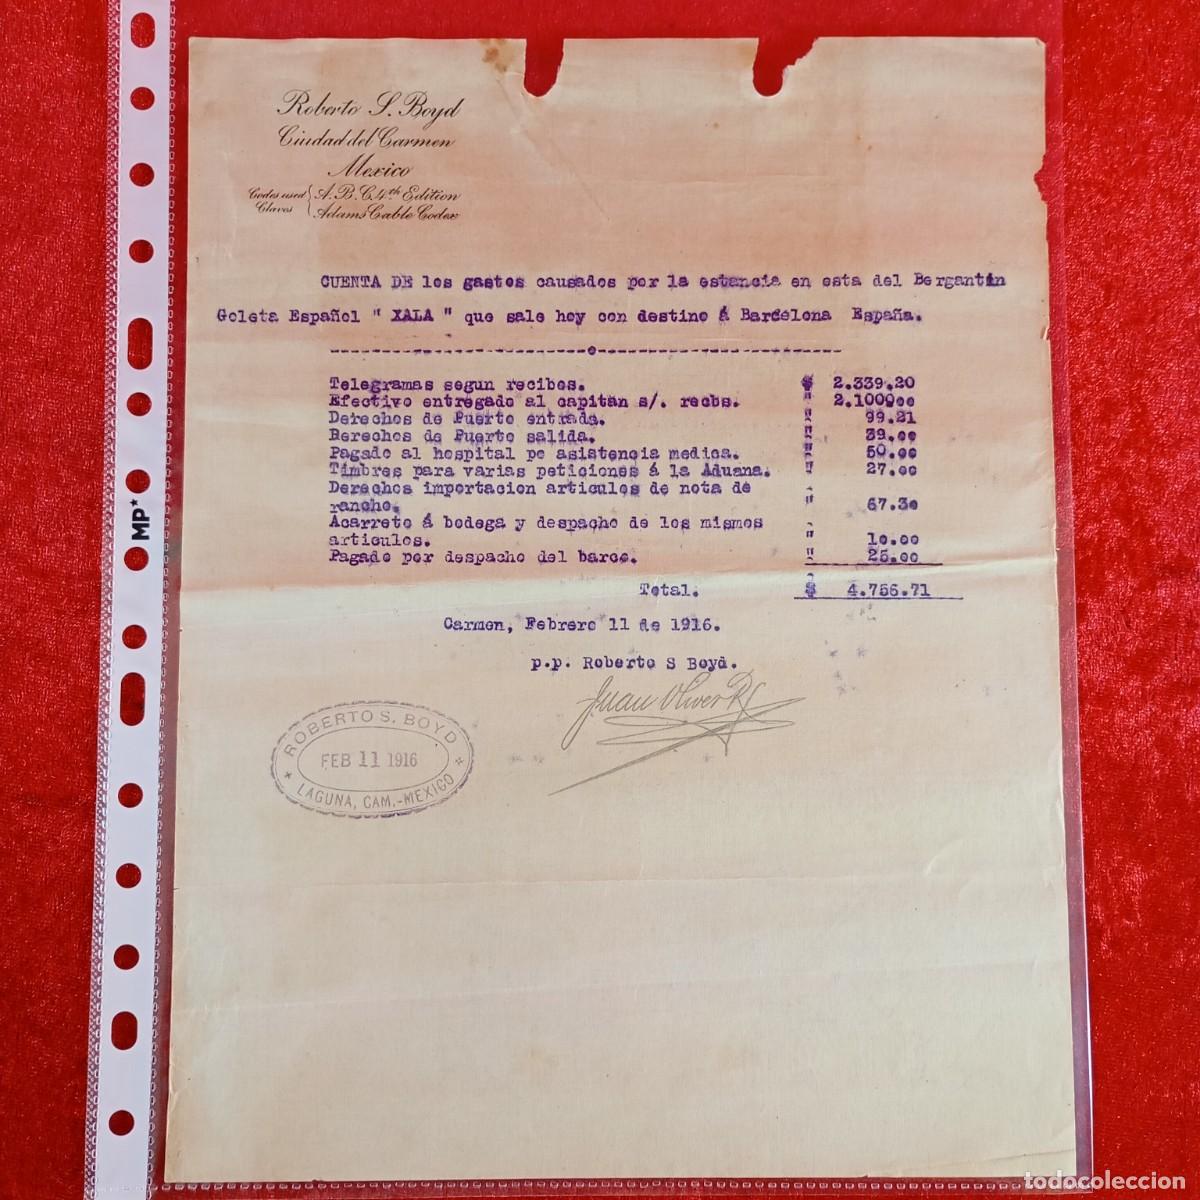 Roberto S. Boyd
Ciudad del Carmen
Mexico
Codes used A.B.C. 4th Edition
Claves Adams Cable Codex
CUENTA DE los gastos causados por la estancia en esta del Bergantin
Goleta Español " XALA " que sale hoy con destino á Barcelona España.
Telegramas segun recibos. $ 2.339.20
Efectivo entregado al capitan s/. recbs. " 2.100000
Derechos de Puerto entrada. " 99.21
Derechos de Puerto salida. " 39.00
Pagado al hospital po asistencia medica. " 50.00
Timbres para varias peticiones á la Aduana. " 27.00
Derechos importacion articulos de nota de
rancho. " 67.30
Acarreto á bodega y despacho de los mismos
articulos. " 10.00
Pagado por despacho del barco. " 25.00
Total. $ 4.756.71
Carmen, Febrero 11 de 1916.
p.p. Roberto S Boyd.
Juan Oliver R
ROBERTO S. BOYD
FEB 11 1916
LAGUNA, CAM.-MEXICO
MP*
todocoleccion